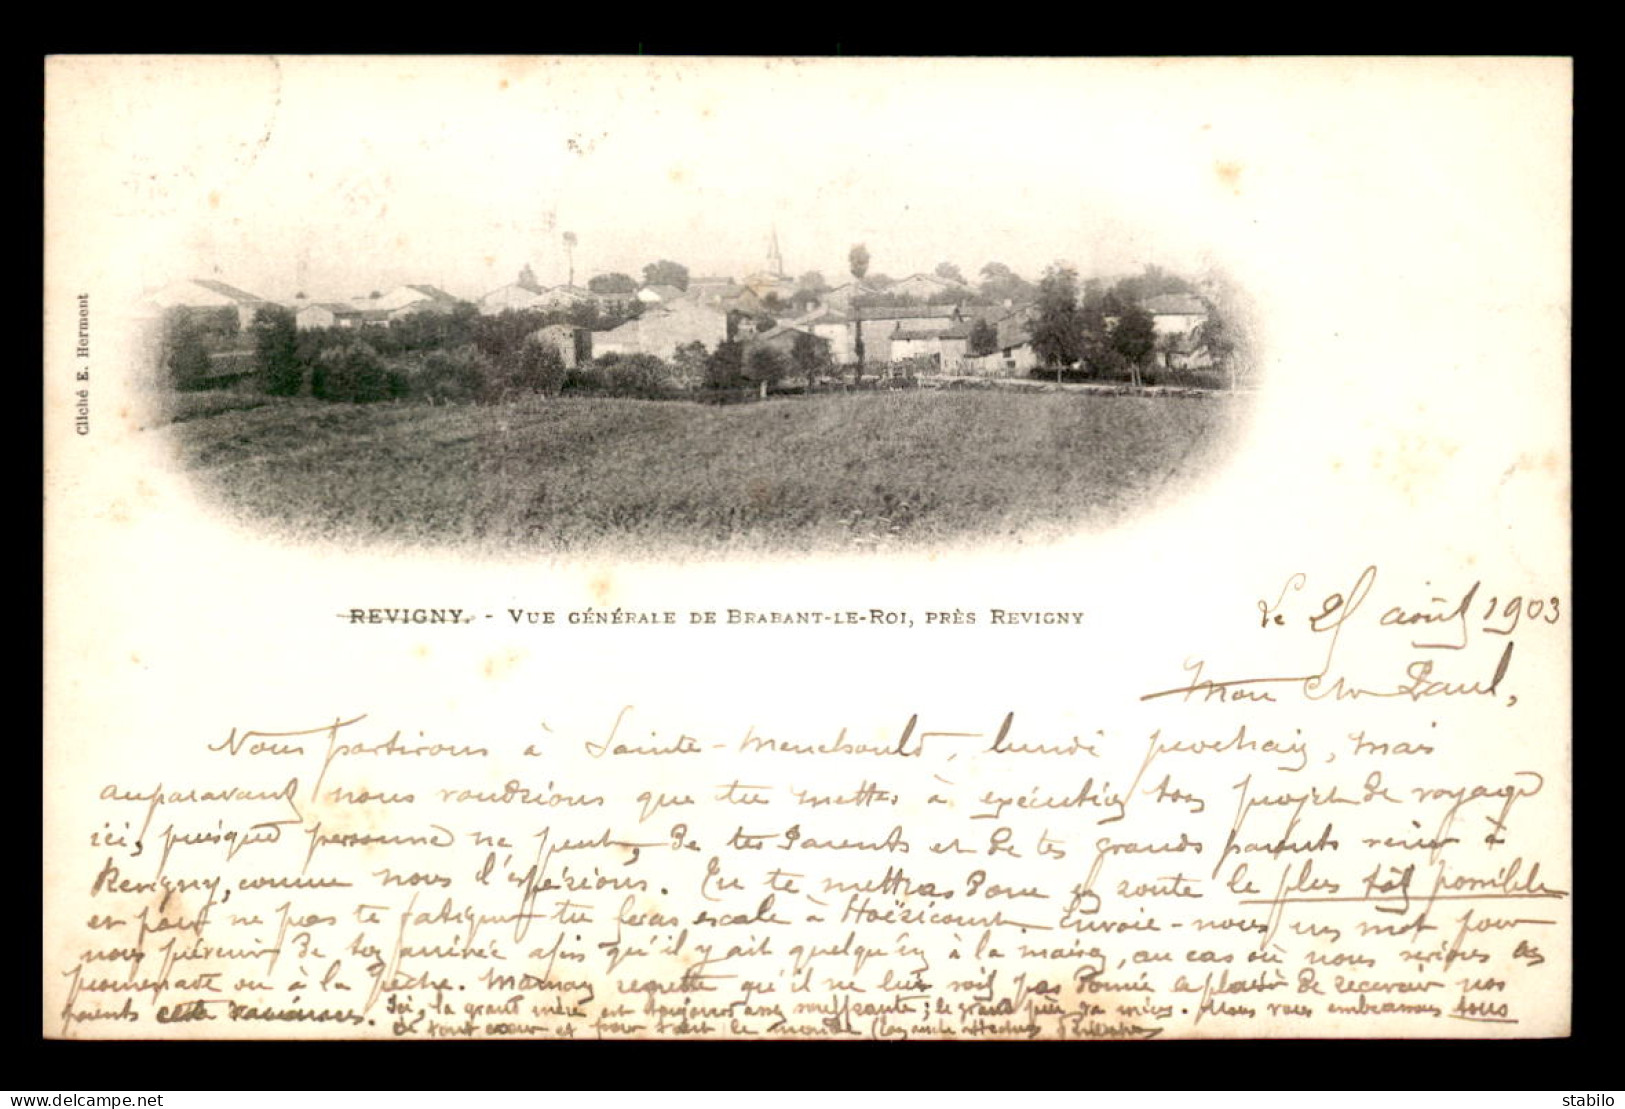 Cliché E. Herment
REVIGNY. - VUE GÉNÉRALE DE BRABANT-LE-ROI, PRÈS REVIGNY
Le 25 août 1903
Mon cher Paul,
Nous partirons à Sainte-Menehould, lundi prochain, mais
auparavant nous voudrions que tu mettes à exécution ton projet de voyage
ici, puisque personne ne peut, de tes Parents et de tes grands parents venir à
Revigny, comme nous l'espérions. Tu te mettras donc en route le plus tôt possible
et pour ne pas te fatiguer tu feras escale à Hoéricourt. Envoie-nous un mot pour
nous prévenir de ton arrivée afin qu'il y ait quelqu'un à la maison, au cas où nous serions en
promenade ou à la Pêche. Maman regrette qu'il ne lui soit pas donné le plaisir de recevoir nos
parents cette . Ici, la grand mère est toujours assez souffrante; le grand père va mieux. Nous vous embrassons tous
de tout cœur et pour tout le monde
delcampe.net
stabilo